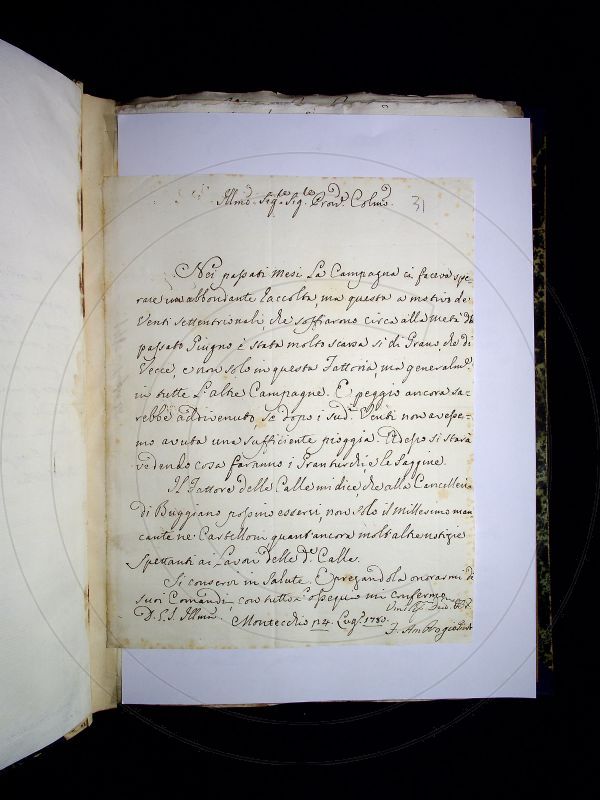 Illmo. Sigre. Sigre. Pron. Colmo.
31
Nei passati Mesi La Campagna ci faceva spe-
rare un'abbondante Raccolta, ma questa a motivo de'
Venti settentrionali che soffiarono circa alla Metà del
passato Giugno è stata molto scarsa sì di Grano che di
Vecce, e non solo in questa Fattoria, ma generalme.
in tutte L'altre Campagne. E peggio ancora sa-
rebbe addivenuto, se dopo i sudi. Venti non avesse-
mo avuta una sufficiente pioggia. Adesso si starà
vedendo cosa faranno i Granturchi, e le Saggine.
Il Fattore delle Calle mi dice, che alla Cancelleria
di Buggiano possino esservi, non solo il Millesimo man
cante ne Cartelloni quant'ancora molt'altre notizie
Spettanti ai Lavori delle de. Calle.
Si conservi in Salute. E pregandola onorarmi di
suoi Comandi, con tutto l'ossequio mi confermo
D. S. S. Illma.
Montecchio 24. Lugl. 1783.